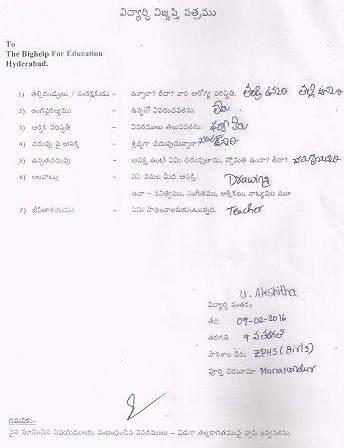 విద్యార్థి విజ్ఞప్తి పత్రము
To
The Bighelp For Education
Hyderabad.
1) తల్లిదండ్రులు / సంరక్షకుడు - ఉన్నారా? లేదా? వారి ఆరోగ్య పరిస్థితి. తండ్రి ఉన్నారు తల్లి ఉన్నారు
2) అంగవైకల్యము - ఉన్నచో వివరించవలెను. లేదు
3) ఆర్థిక పరిస్థితి - వివరములు తెలుపవలెను.
4) చదువు పై ఆసక్తి - శ్రద్ధగా చదువుచున్నారా?
5) ఉన్నతచదువు - ఆసక్తి ఉంటే ఏమి చదువుతాడు, స్తోమత ఉందా? లేదా?
6) అలవాట్లు - ఏఏ పనుల మీద ఆసక్తి. Drawing
ఉదా - కవిత్వము, సంగీతము, అల్లికలు, నాట్యము మొ॥
7) జీవితాశయము - ఏమి సాధించాలనుకుంటున్నది. Teacher
U. Akshitha
విద్యార్థి సంతకం
తేది. 09-02-2016
తరగతి 9 వ తరగతి
పాఠశాల పేరు ZPHS (Girls)
పూర్తి చిరునామా Manakondur
గమనిక:-
పైన సూచించిన విషయములకు సంబంధించిన వివరములు - విడిగా తెల్లకాగితముపై వ్రాసి ఇవ్వవలెను.